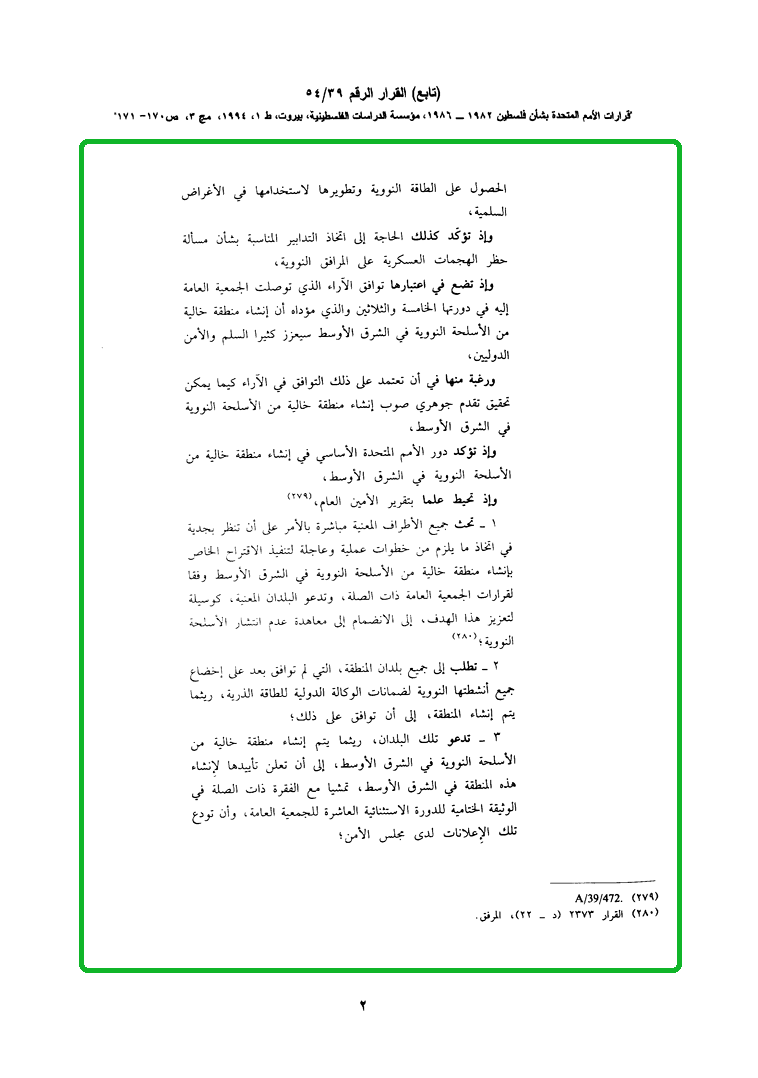 (تابع) القرار الرقم ٥٤/٣٩
"قرارات الأمم المتحدة بشأن فلسطين ١٩٨٢ ــ ١٩٨٦، مؤسسة الدراسات الفلسطينية، بيروت، ط ١، ١٩٩٤، مج ٣، ص١٧٠– ١٧١"
الحصول على الطاقة النووية وتطويرها لاستخدامها في الأغراض
السلمية،
وإذ تؤكّد كذلك الحاجة إلى اتخاذ التدابير المناسبة بشأن مسألة
حظر الهجمات العسكرية على المرافق النووية،
وإذ تضع في اعتبارها توافق الآراء الذي توصلت الجمعية العامة
إليه في دورتها الخامسة والثلاثين والذي مؤداه أن إنشاء منطقة خالية
من الأسلحة النووية في الشرق الأوسط سيعزز كثيرا السلم والأمن
الدوليين،
ورغبة منها في أن تعتمد على ذلك التوافق في الآراء كيما يمكن
تحقيق تقدم جوهري صوب إنشاء منطقة خالية من الأسلحة النووية
في الشرق الأوسط،
وإذ تؤكد دور الأمم المتحدة الأساسي في إنشاء منطقة خالية من
الأسلحة النووية في الشرق الأوسط،
وإذ تحيط علما بتقرير الأمين العام،(٢٧٩)
١ ـ تحث جميع الأطراف المعنية مباشرة بالأمر على أن تنظر بجدية
في اتخاذ ما يلزم من خطوات عملية وعاجلة لتنفيذ الاقتراح الخاص
بإنشاء منطقة خالية من الأسلحة النووية في الشرق الأوسط وفقا
لقرارات الجمعية العامة ذات الصلة، وتدعو البلدان المعنية، كوسيلة
لتعزيز هذا الهدف، إلى الانضمام إلى معاهدة عدم انتشار الأسلحة
النووية؛(٢٨٠)
٢ ـ تطلب إلى جميع بلدان المنطقة، التي لم توافق بعد على إخضاع
جميع أنشطتها النووية لضمانات الوكالة الدولية للطاقة الذرية، ريثما
يتم إنشاء المنطقة، إلى أن توافق على ذلك؛
٣ ـ تدعو تلك البلدان، ريثما يتم إنشاء منطقة خالية من
الأسلحة النووية في الشرق الأوسط، إلى أن تعلن تأييدها لإنشاء
هذه المنطقة في الشرق الأوسط، تمشيا مع الفقرة ذات الصلة في
الوثيقة الختامية للدورة الاستثنائية العاشرة للجمعية العامة، وأن تودع
تلك الإعلانات لدى مجلس الأمن؛
(٢٧٩) A/39/472.
(٢٨٠) القرار ٢٣٧٣ (د ـ ٢٢)، المرفق.
٢